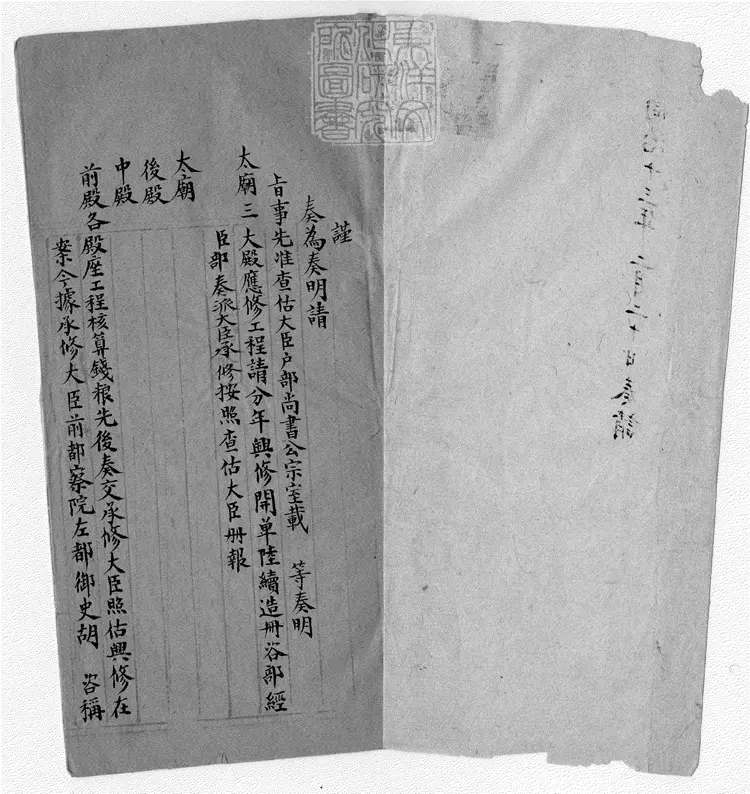 同治十三年二月二十日奏請
東洋文
化研究
所圖書
謹
奏為奏明請
旨事先准查估大臣户部尚書公宗室載　等奏明
太廟三大殿應修工程請分年興修開单陸續造冊咨部經
臣部奏派大臣承修按照查估大臣冊報
太廟
後殿
中殿
前殿各殿座工程核算錢粮先後奏交承修大臣照估興修在
案今據承修大臣前都察院左都御史胡　咨稱